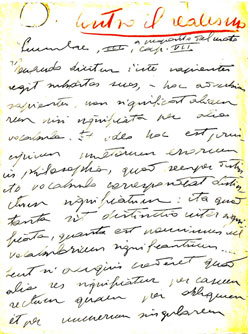 contro il realismo
a proposito del moto
Summulae, III, cap. VII
Quando dicitur "iste sapienter
regit subditos suos", hoc
sapienter, non significat aliquam
rem nisi significata per alia
vocabula. Et ideo hoc est prin-
cipium multorum errorum
in philosophia, quod semper distin-
cto vocabulo correspondeat distin-
ctum significatum: ita quod
tanta sit distinctio inter signi-
ficata, quanta est nominum vel
vocabulorum significantium...
crederet quod
alia res significatur per casum
rectum quam per obliquum
et per numerum singularem